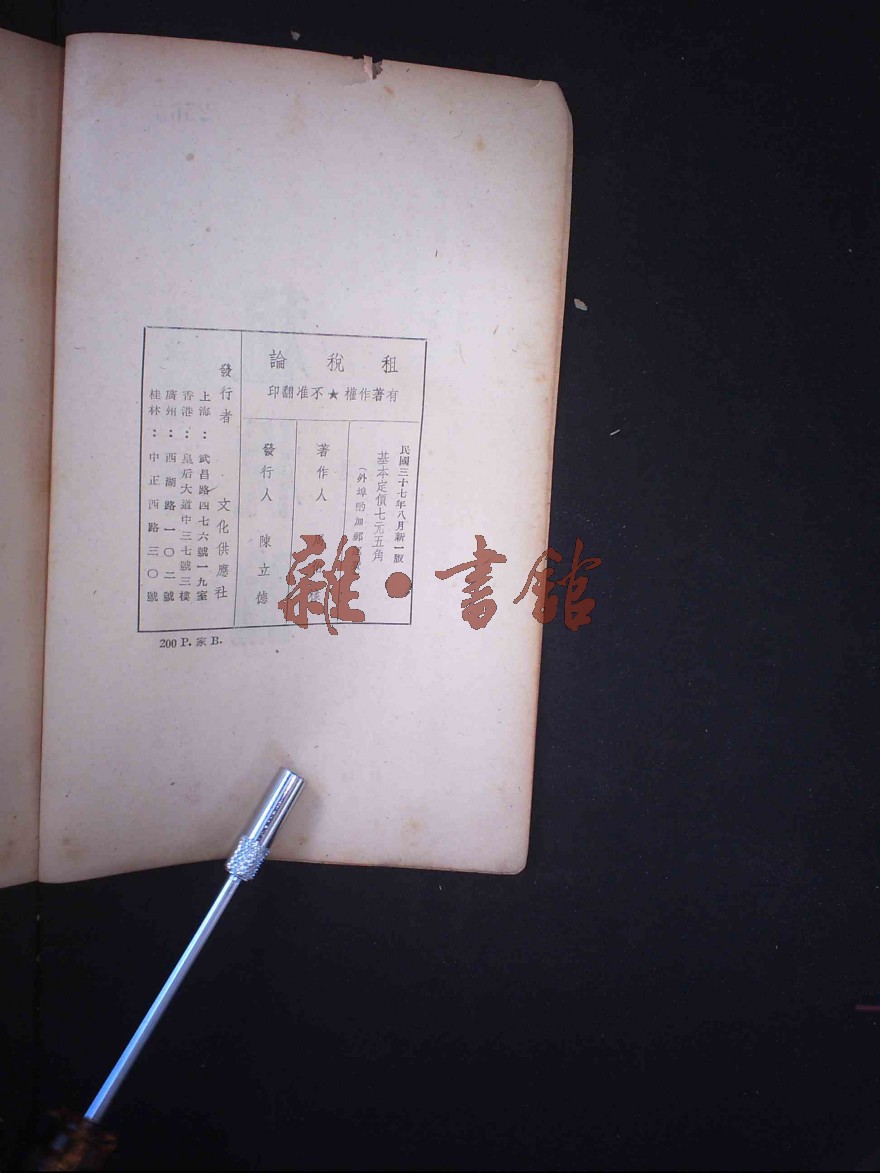 租稅論
有著作權★不准翻印
民國三十七年八月新一版
基本定價七元五角
（外埠酌加郵
著作人
發行人 陳立德
發行者 文化供應社
上海：武昌路四七六號一九室
香港：皇后大道中三七號三樓
廣州：西湖路一〇二號
桂林：中正西路三〇號
200 P. 家 B.
雜·書館